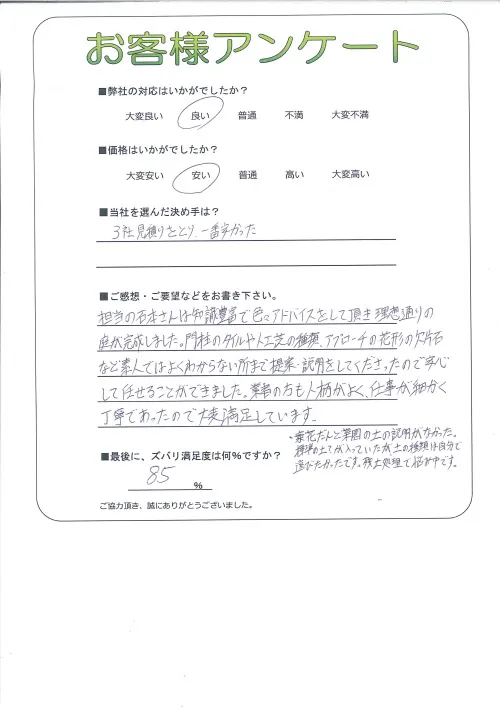 お客様アンケート
■弊社の対応はいかがでしたか？
大変良い 良い 普通 不満 大変不満
■価格はいかがでしたか？
大変安い 安い 普通 高い 大変高い
■当社を選んだ決め手は？
3社見積りをとり、一番安かった
■ご感想・ご要望などをお書き下さい。
担当の石本さんは知識豊富で色々アドバイスをして頂き理想通りの
庭が完成しました。門柱のタイルや人工芝の種類、アプローチの花形の欠片石
など素人ではよくわからない所まで提案・説明をしてくださったので安心
して任せることができました。業者の方も人柄がよく、仕事が細かく
丁寧であったので大変満足しています。
・花だんと菜園の土の説明がなかった。
標準の土が入っていたが土の種類は自分で
選びたかったです。残土処理で悩み中です。
■最後に、ズバリ満足度は何％ですか？
85 ％
ご協力頂き、誠にありがとうございました。